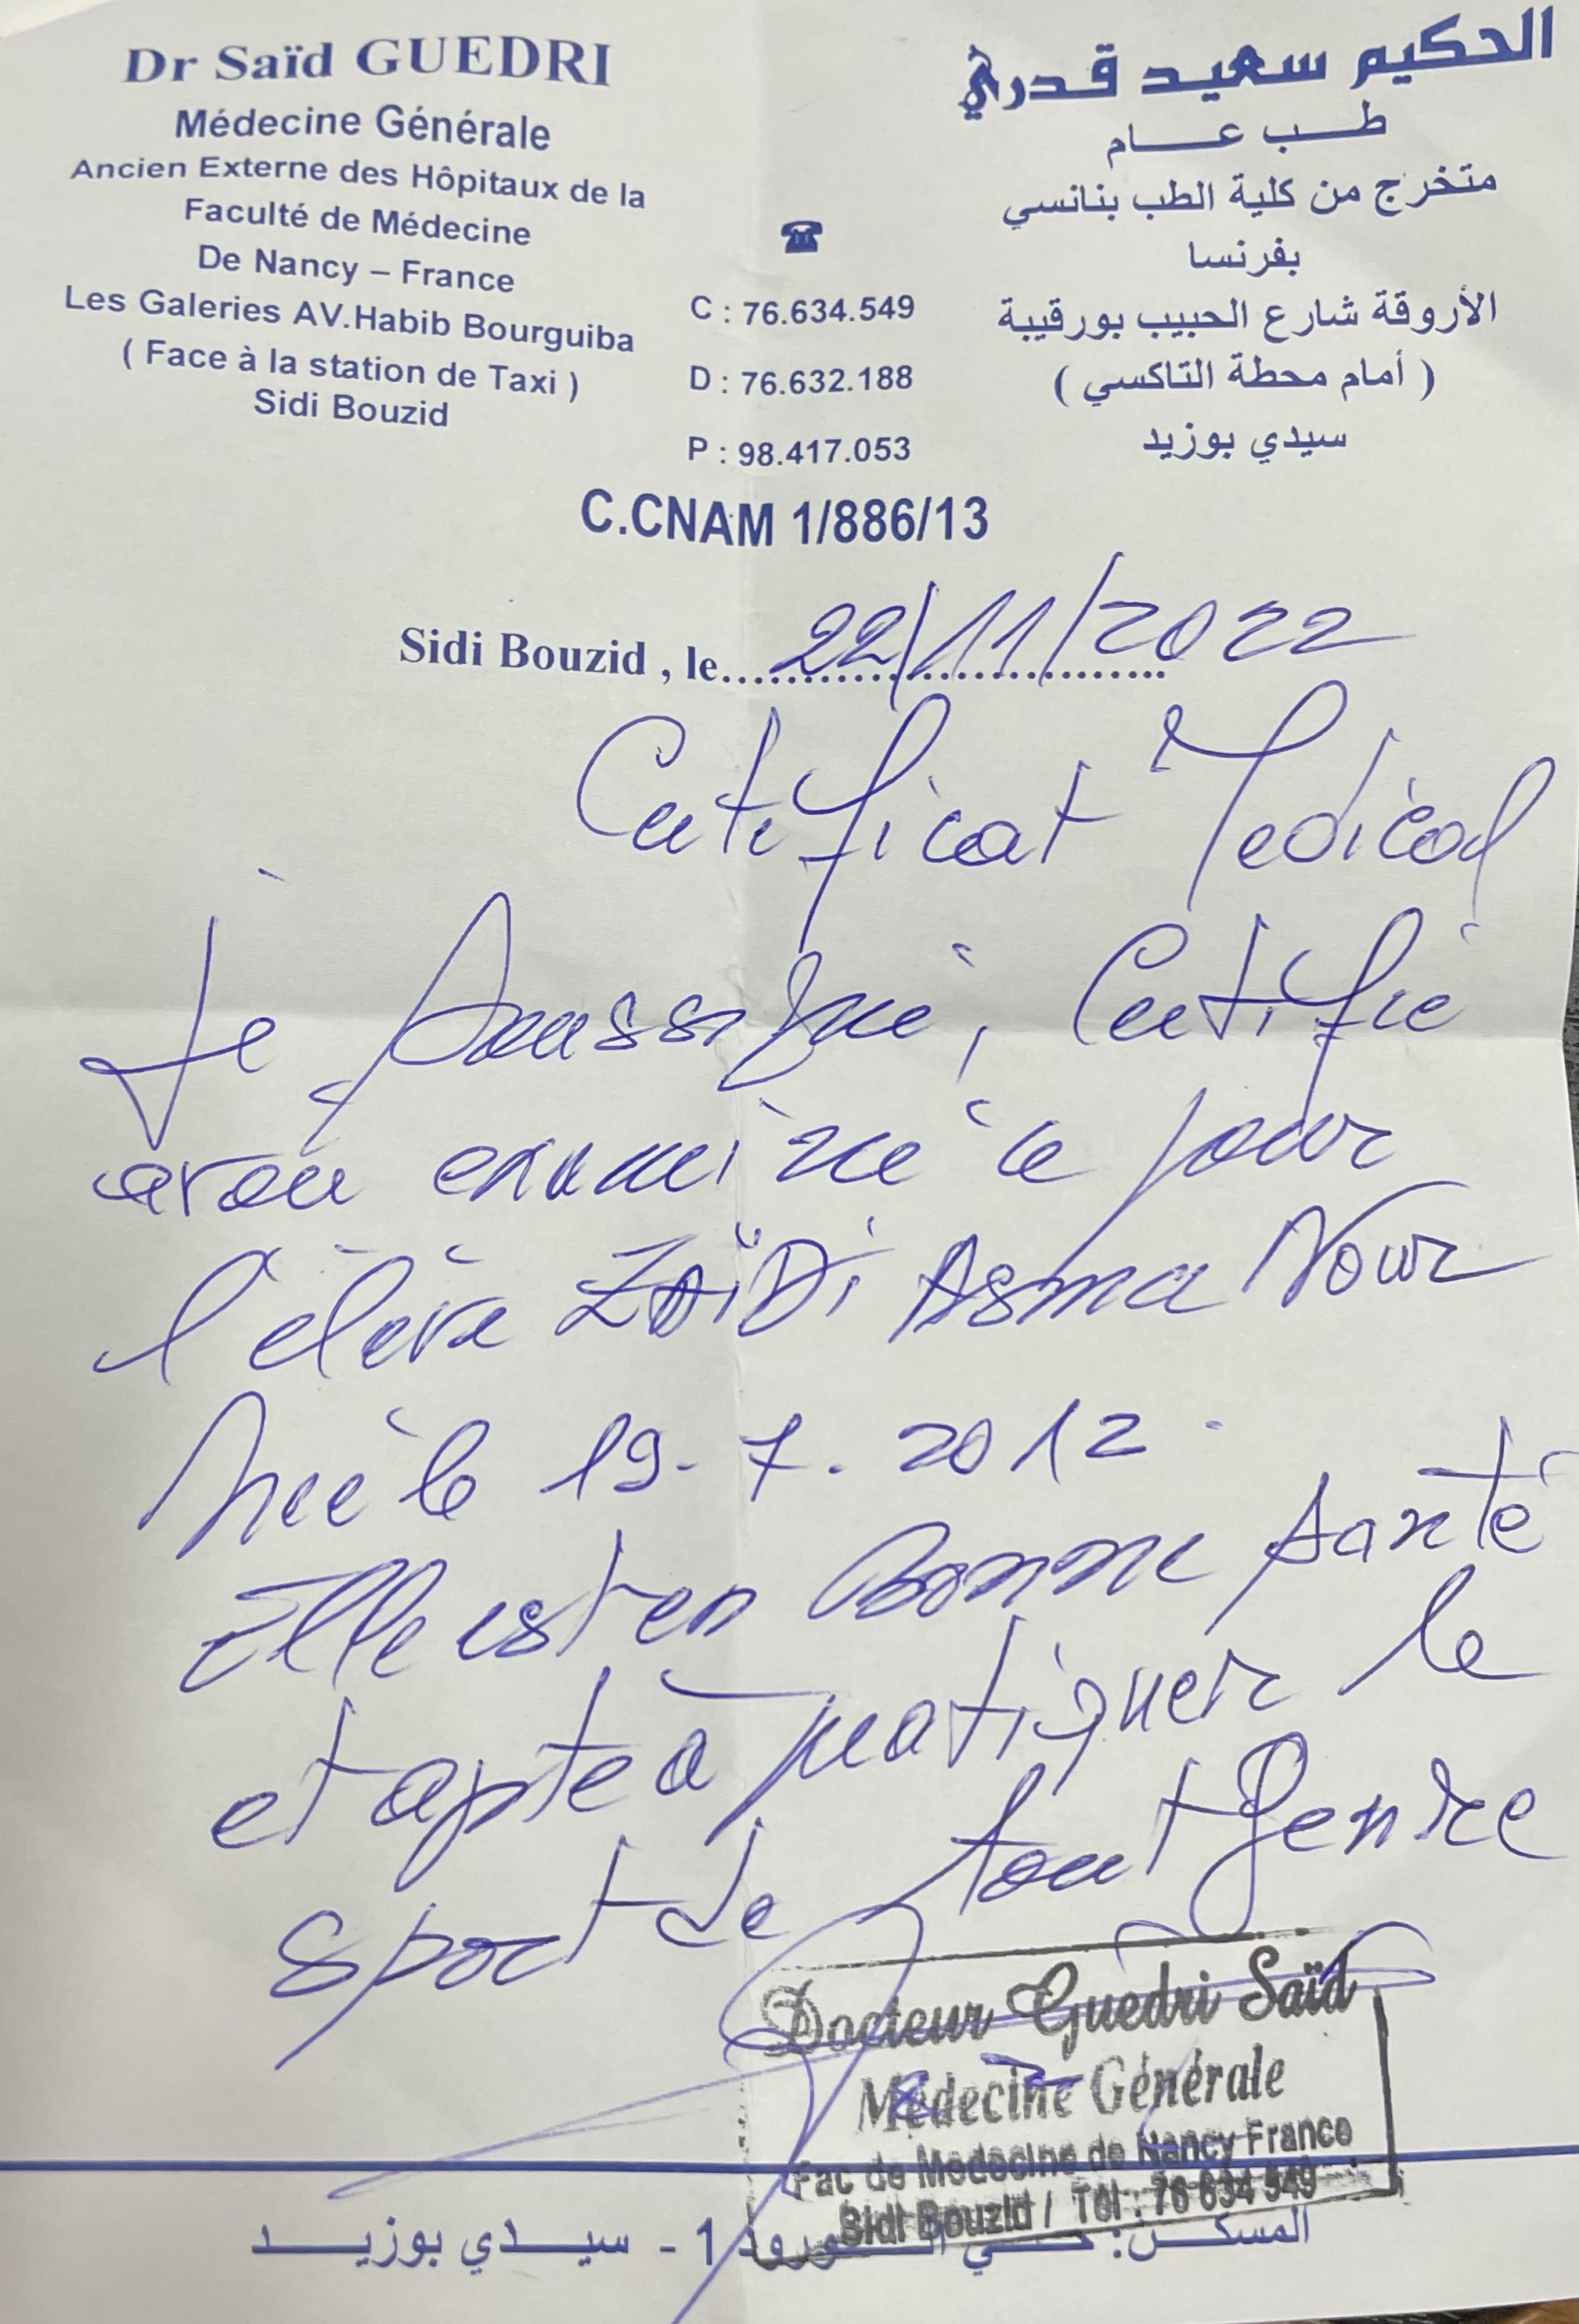 Dr Saïd GUEDRI
Médecine Générale
Ancien Externe des Hôpitaux de la
Faculté de Médecine
De Nancy – France
Les Galeries AV.Habib Bourguiba
( Face à la station de Taxi )
Sidi Bouzid
☎
C : 76.634.549
D : 76.632.188
P : 98.417.053
الحكيم سعيد قدري
طب عام
متخرج من كلية الطب بنانسي
بفرنسا
الأروقة شارع الحبيب بورقيبة
( أمام محطة التاكسي )
سيدي بوزيد
C.CNAM 1/886/13
Sidi Bouzid , le 22/11/2022
Certificat Medical
Je soussigné, Certifie
avoir examiné ce jour
l'élève ZAïDi Asma Nour
née le 19.7.2012.
Elle est en Bonne santé
et apte à pratiquer le
sport de tout genre
Docteur Guedri Saïd
Médecine Générale
Fac de Medecine de Nancy France
Sidi Bouzid / Tél : 76 634 549
المسكن: حي الورود 1 - سيدي بوزيد